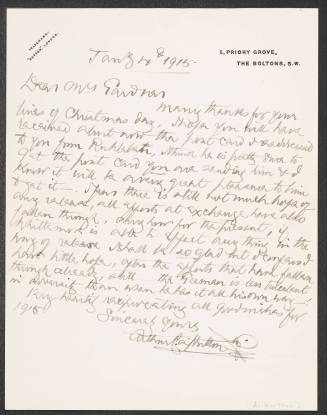 TELEGRAMS,
5, PRIORY GROVE,
THE BOLTONS, S.W.
1915
Dear Mrs Gardner
Many thanks for your
lines of Christmas day, I hope you will have
received about now the post card I addressed
to you from Ruhleben, I think he is pretty sure to
get the post card you are sending him & I
know it will be a very great pleasure to him
to get it. I fear there is still not much hope of
any release, all efforts at exchange have also
fallen through, always for the present, if
is able to effect anything in the
way of release I shall be so glad but I confess I
have little hope, after the efforts that have fallen
through already, still the German is less truculent
in adversity than when he has it all his own way
Very heartily reciprocating all good wishes for
1915
Sincerely Yours